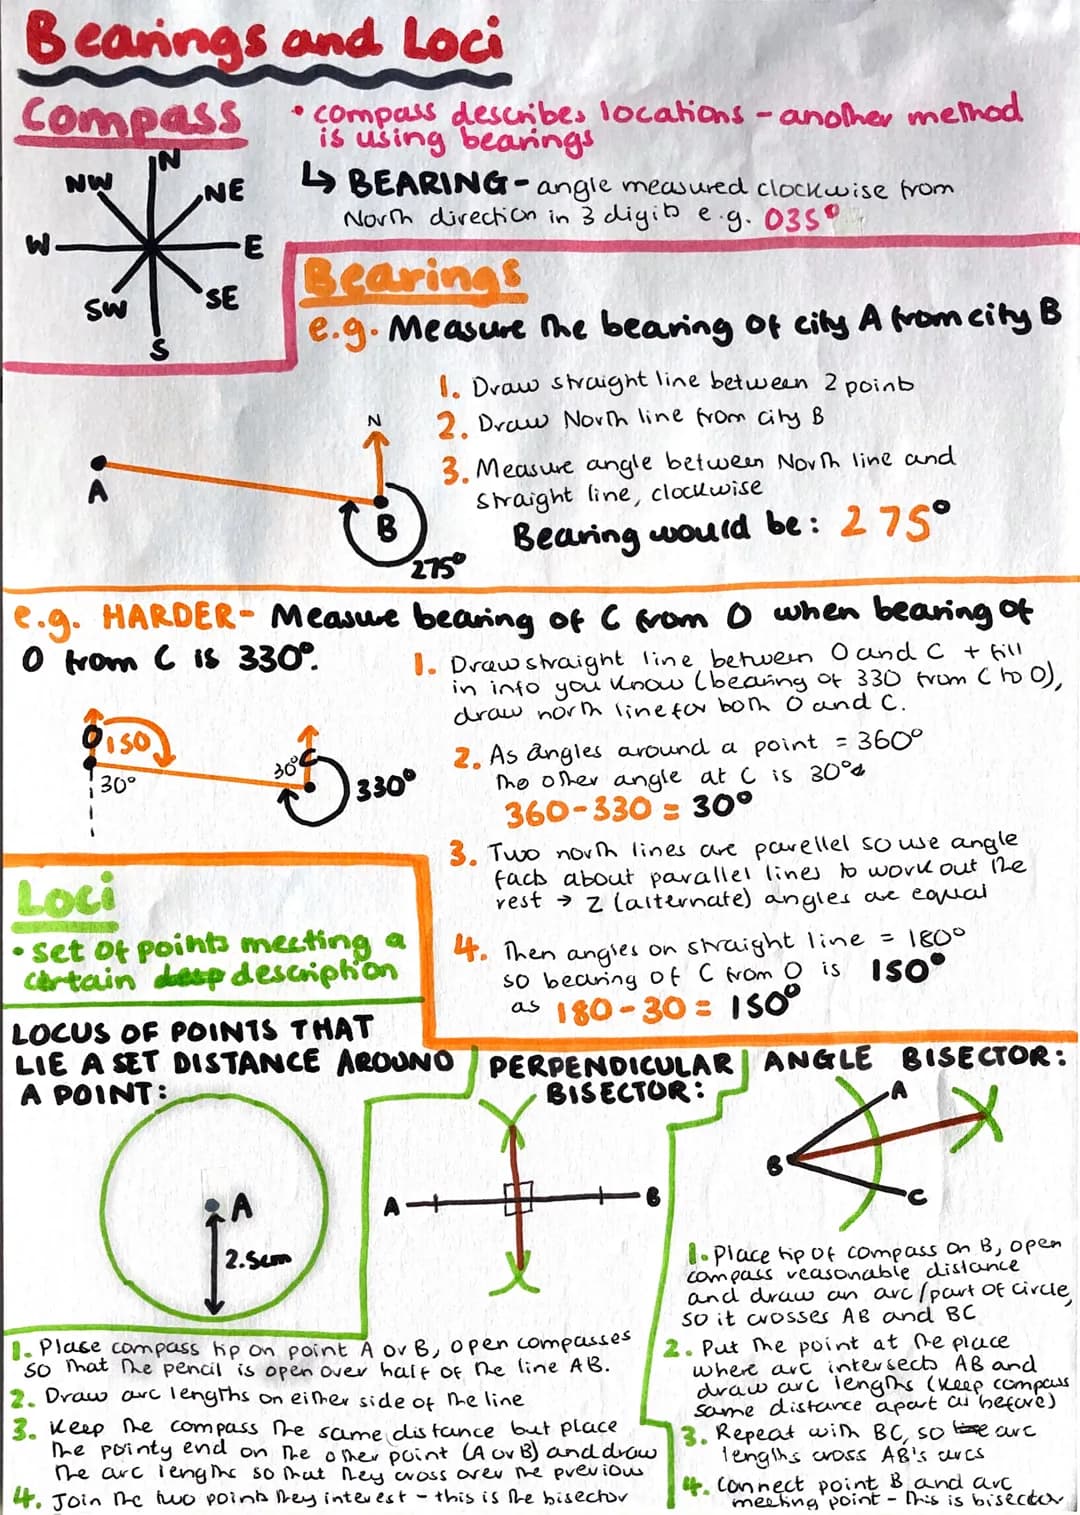 Bearings and Loci
Compass
• compass describes locations - another method
is using bearings
↳ BEARING - angle measured clockwise from
North direction in 3 digits e.g. 035°
N
NW
NE
W
E
SW
SE
S
Bearings
e.g. Measure the bearing of city A from city B
1. Draw straight line between 2 points
2. Draw North line from city B
3. Measure angle between North line and
straight line, clockwise
Bearing would be: 275°
N
A
B
275°
e.g. HARDER - Measure bearing of C from O when bearing of
O from C is 330°.
1. Draw straight line between O and C + fill
in info you know (bearing of 330 from C to O),
draw north line for both O and C.
2. As angles around a point = 360°
the other angle at C is 30°
360-330 = 30°
3. Two north lines are parellel so use angle
facts about parallel lines to work out the
rest → Z (alternate) angles are equal
4. Then angles on straight line = 180°
so bearing of C from O is 150°
as 180-30 = 150°
O
150
30°
30°
C
330°
Loci
• set of points meeting a
certain description
LOCUS OF POINTS THAT
LIE A SET DISTANCE AROUND
A POINT:
A
2.5cm
PERPENDICULAR
BISECTOR:
A
B
1. Place compass tip on point A or B, open compasses
so that the pencil is open over half of the line AB.
2. Draw arc lengths on either side of the line
3. Keep the compass the same distance but place
the pointy end on the other point (A or B) and draw
the arc lengths so that they cross over the previous
4. Join the two points they interest - this is the bisector
ANGLE BISECTOR:
A
B
C
1. Place tip of compass on B, open
compass reasonable distance
and draw an arc/part of circle,
so it crosses AB and BC
2. Put the point at the place
where arc intersects AB and
draw arc lengths (keep compass
same distance apart as before)
3. Repeat with BC, so arc
lengths cross AB's arcs
4. Connect point B and arc
meeting point - this is bisector